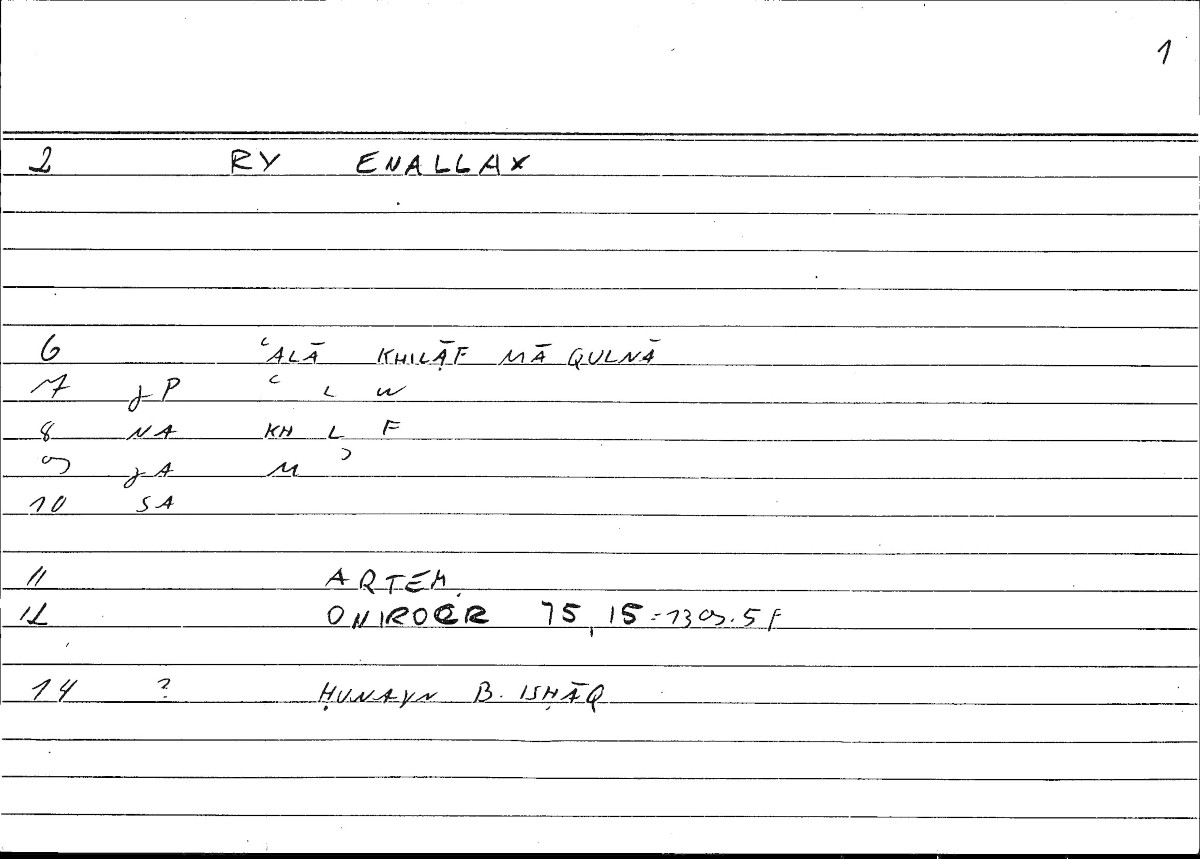 1
2 RY ENALLAX
6 ʿALĀ KHILĀF MĀ QULNĀ
7 jP ʿ L W
8 NA KH L F
9 jA M ʾ
10 SA
11 ARTEM.
12 ONIROCR 75,15=139.5f
14 ? ḤUNAYN B. ISḤĀQ